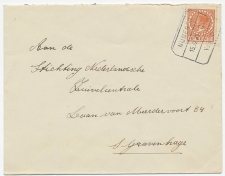 Aan de
Stichting Nederlandsche
Zuivelcentrale
Laan van Meerdervoort 84
's-Gravenhage